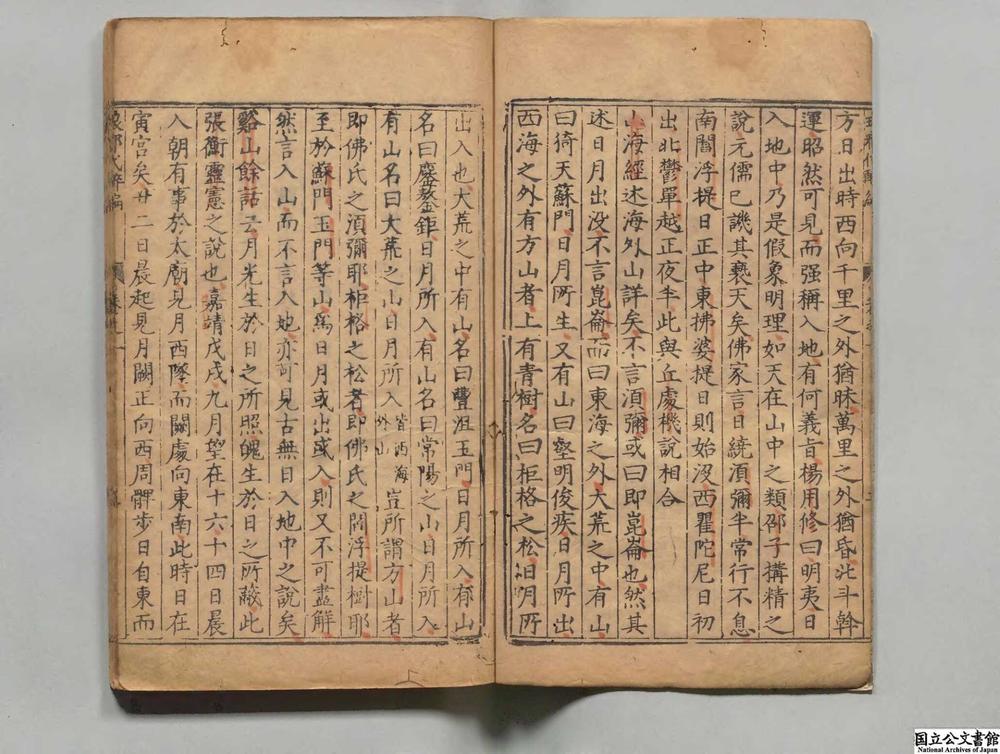 方日出時西向千里之外猶昧萬里之外猶昏北斗斡
運昭然可見而强稱入地有何義旨楊用修曰明夷日
入地中乃是假象明理如天在山中之類邵子搆精之
說元儒已譏其褻天矣佛家言日繞湏彌半常行不息
南閻浮提日正中東拂婆提日則始沒西瞿陀尼日初
出北鬱單越正夜半此與丘處機說相合
山海經述海外山詳矣不言湏彌或曰即崑崙也然其
述日月出没不言崑崙而曰東海之外大荒之中有山
曰猗天蘇門日月所生又有山曰壑明俊疾日月所出
西海之外有方山者上有青樹名曰柜格之松日月所
出入也大荒之中有山名曰豐沮玉門日月所入有山
名曰鏖鏊鉅日月所入有山名曰常陽之山日月所入
有山名曰大荒之山日月所入皆西海外山豈所謂方山者
即佛氏之湏彌耶柜格之松者即佛氏之閻浮提樹耶
至於蘇門玉門等山為日月或出或入則又不可盡解
然言入山而不言入地亦可見古無日入地中之說矣
谿山餘話云月光生於日之所照魄生於日之所蔽此
張衡靈憲之說也嘉靖戊戌九月望在十六十四日晨
入朝有事於太廟見月西墜而闕處向東南此時日在
寅宮矣廿二日晨起見月闕正向西周髀步日自東而
国立公文書館
National Archives of Japan